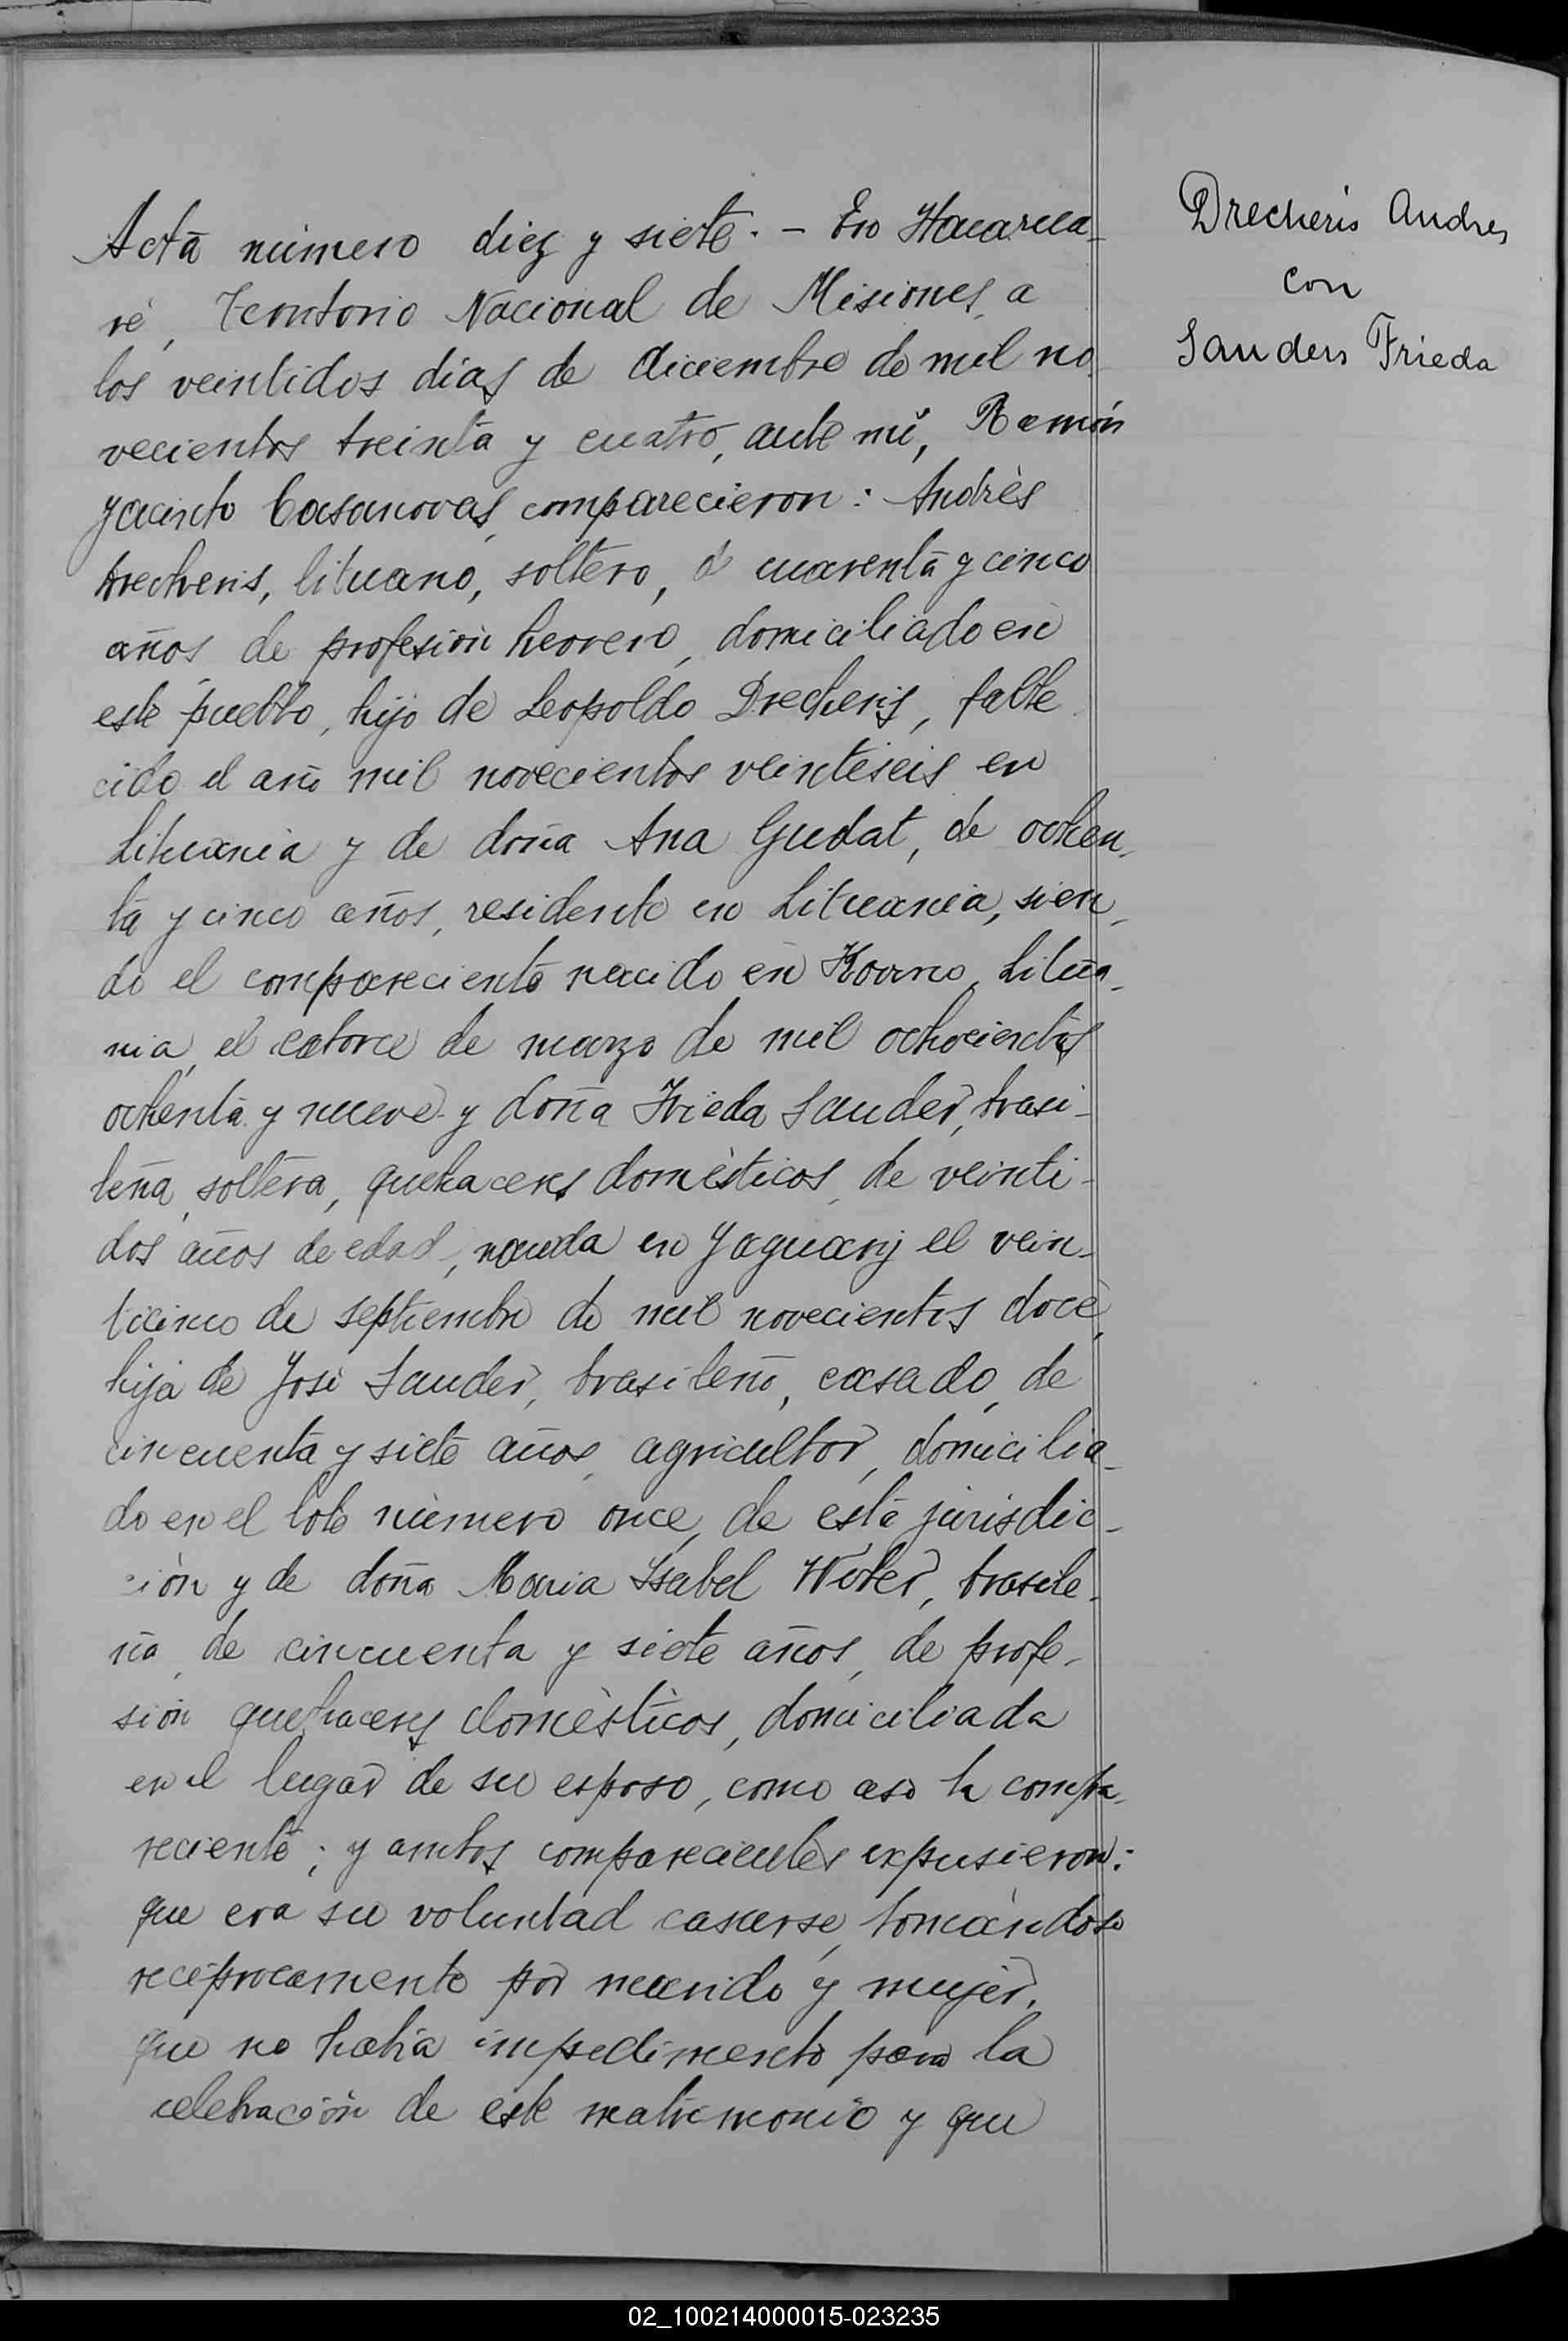 Drecheris Andres
con
Sanders Frieda
Acta número diez y siete. - En Itacarua-
ré, Territorio Nacional de Misiones, a
los veintidos dias de diciembre de mil no-
vecientos treinta y cuatro, ante mi, Ramón
Jacinto Casanovas, comparecieron: Andrès
Drecheris, lituano, soltero, de cuarenta y cinco
años, de profesiòn herrero, domiciliado en
este pueblo, hijo de Leopoldo Drecheris, falle
cido el año mil novecientos veinteseis en
Lituania y de doña Ana Gudat, de ochen-
ta y cinco años, residente en Lituania, sien-
do el compareciente nacido en Kovno, Litua-
nia, el catorce de marzo de mil ochocientos
ochenta y nueve y doña Frieda Sander, brasi-
leña, soltera, quehaceres domèsticos, de veinti-
dos años de edad, nacida en Yaguary el vein-
ticinco de septiembre de mil novecientos doce,
hija de José Sander, brasileño, casado, de
cincuenta y siete años, agricultor, domicilia-
do en el lote nùmero once, de esta jurisdic-
ciòn y de doña Maria Ysabel Weber, brasile-
ña, de cincuenta y siete años, de profe-
siòn quehaceres domèsticos, domiciliada
en el lugar de su esposo, como asi la compa-
reciente; y ambos comparecientes expusieron:
que era su voluntad casarse, tomàndose
reciprocamente por marido y mujer,
que no habia impedimento para la
celebraciòn de este matrimonio y que
02_100214000015-023235